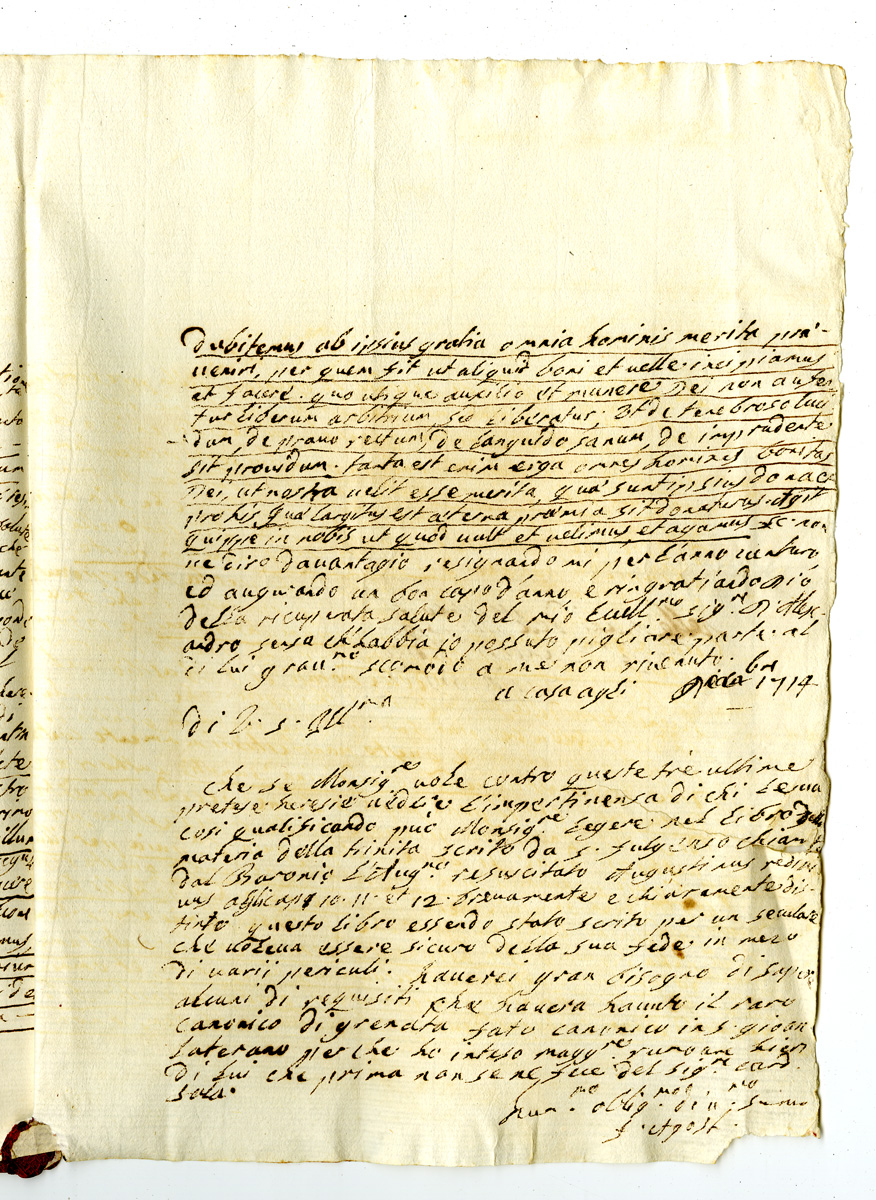 dubitemus ab ipsius gratia omnia hominis merita præ-
veniri, per quem fit ut aliquid boni et velle incipiamus
et facere. quo utique auxilio et munere Dei non aufer-
tur liberum arbitrium sed liberatur; ut de tenebroso luci
dum, de pravo rectum, de languido sanum, de imprudente
sit providum. tanta est enim erga omnes homines bonitas
Dei, ut nostra velit esse merita, quæ sunt ipsius dona et
pro his quæ largitus est æterna præmia sit donaturus. Agit
quippe in nobis ut quod vult et velimus et agamus &c. non
ne diro davantagio resignando mi per l'anno venturo
ed augurando un bon capo d'anno e ringratiando Dio
della ricuperata salute del mio Ecell.mo sig.re D. Alex-
andro senza ch'habbia io possuto pigliare parte al
di lui grav.mo scomodo a me non rivenuto.
a casa agli Decembr 1714
di V. S. Ill.ma
Che se Monsig.re vole contro queste trè ultime
pretese heresie vedere l'impertinenza di chi le va
cosi qualificando può Monsig.re legere nel libro della
materia della trinita scrito da S. fulgenso chiam
dal Baronio l'Aug.no resuscitato Augustinus redivi
vus agli capi 10. 11. et 12 brevamente e chiaramente dis-
tinto questo libro essendo stato scrito per un seculare
che voleva essere sicuro della sua fede in mezo
di varii periculi. haverei gran bisogno di sapere
alcuni di requisiti che havera havuto il raro
canonico di grenata fato canonico in S. gioan
laterano perche ho inteso magg.re rumore hieri
di lui che prima non se ne fece del sig.re card.
sala.
hum.mo oblig.mo di v.
S. Agost.